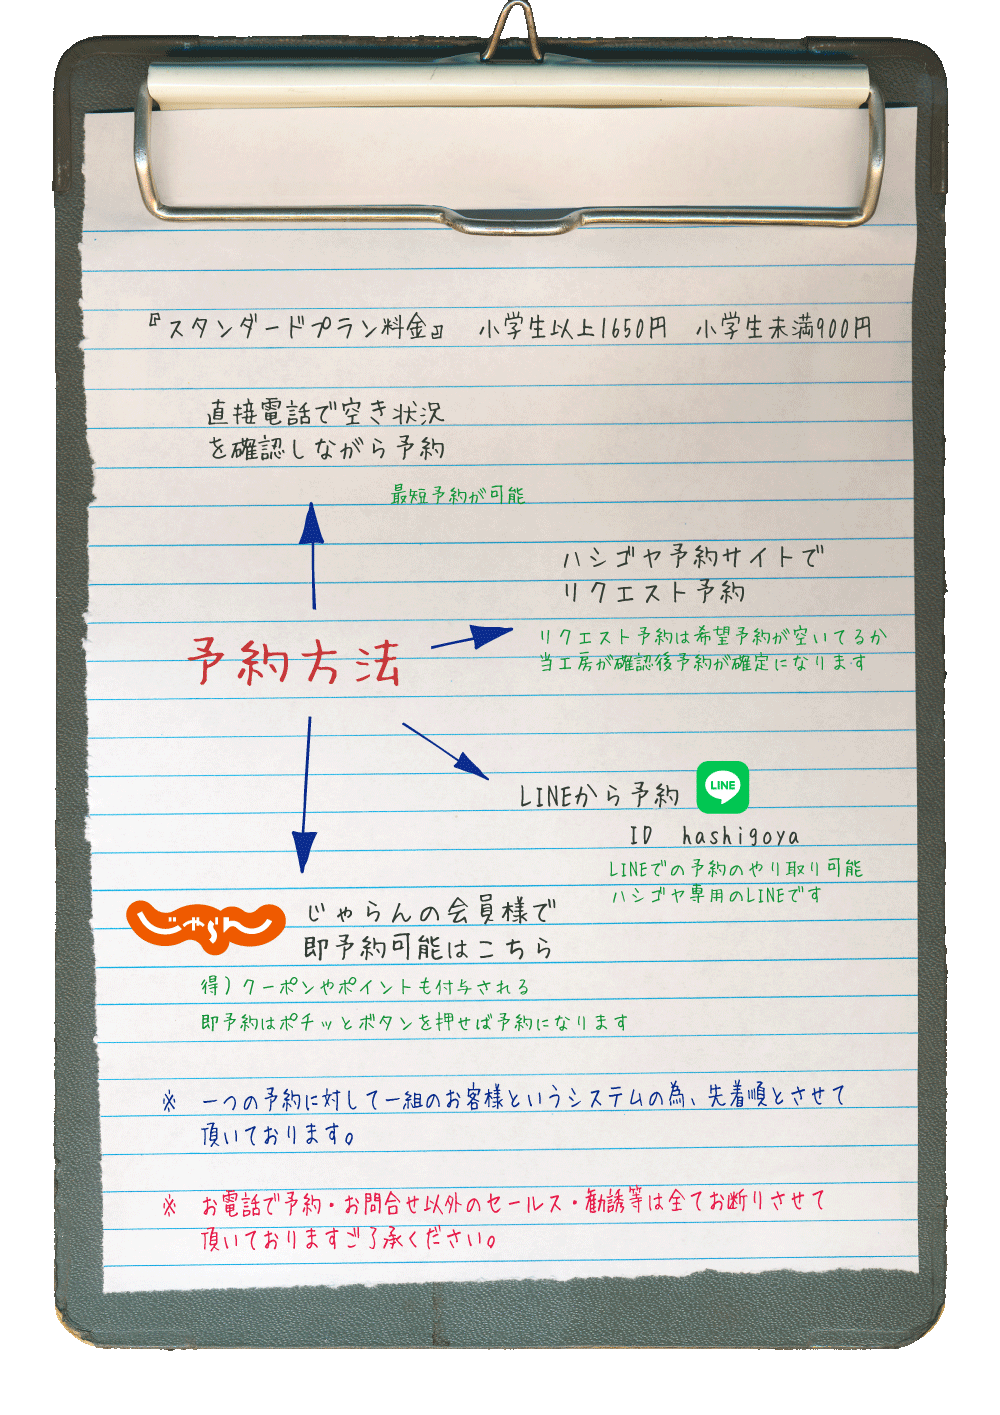 『スタンダードプラン料金』 小学生以上1650円 小学生未満900円
直接電話で空き状況
を確認しながら予約
最短予約が可能
ハシゴヤ予約サイトで
リクエスト予約
リクエスト予約は希望予約が空いてるか
当工房が確認後予約が確定になります
予約方法
LINEから予約
LINE
ID hashigoya
LINEでの予約のやり取り可能
ハシゴヤ専用のLINEです
じゃらん
じゃらんの会員様で
即予約可能はこちら
得）クーポンやポイントも付与される
即予約はポチッとボタンを押せば予約になります
※ 一つの予約に対して一組のお客様というシステムの為、先着順とさせて
頂いております。
※ お電話で予約・お問合せ以外のセールス・勧誘等は全てお断りさせて
頂いておりますご了承ください。